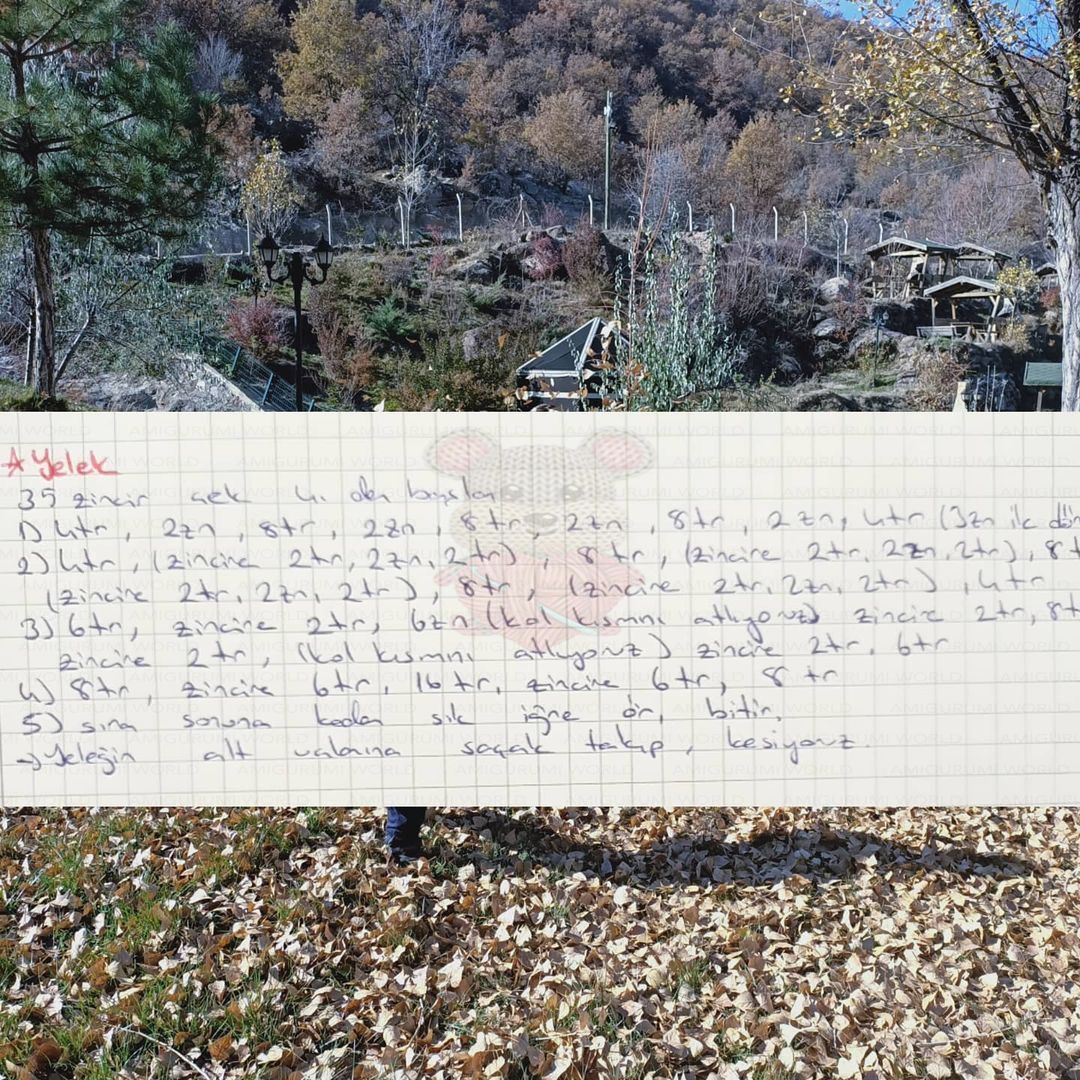 ☆ Yelek
35 zincir çek 4. den başla
1) 4tr, 2zn, 8tr, 2zn, 8tr, 2zn, 8tr, 2zn, 4tr (3zn ilk dön
2) 4tr, (zincire 2tr, 2zn, 2tr), 8tr, (zincire 2tr, 2zn, 2tr), 8t
(zincire 2tr, 2zn, 2tr), 8tr, (zincire 2tr, 2zn, 2tr), 4tr
3) 6tr, zincire 2tr, 6zn (kol kısmını atlıyoruz) zincire 2tr, 8t
zincire 2tr, (kol kısmını atlıyoruz) zincire 2tr, 6tr
4) 8tr, zincire 6tr, 16tr, zincire 6tr, 8tr
5) sıra sonuna kadar sık iğne ör, bitir.
→ Yeleğin alt uçlarına saçak takıp, kesiyoruz.
AMIGURUMI WORLD